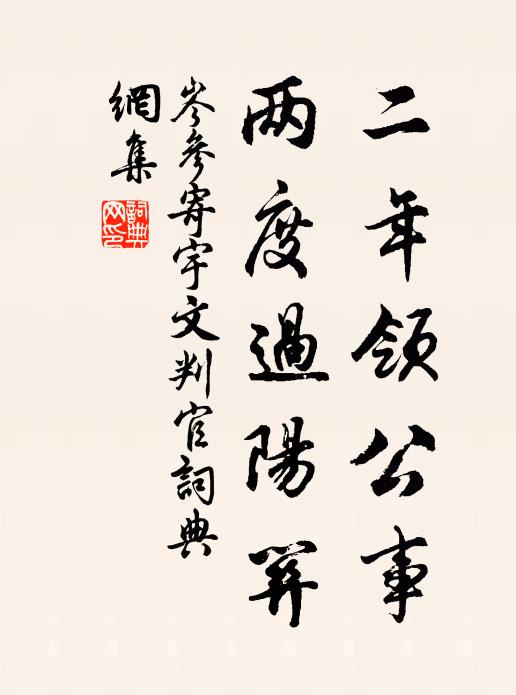 二年領公事
两度過陽関
岑參寄宇文判官詞典
網集
詞典网印